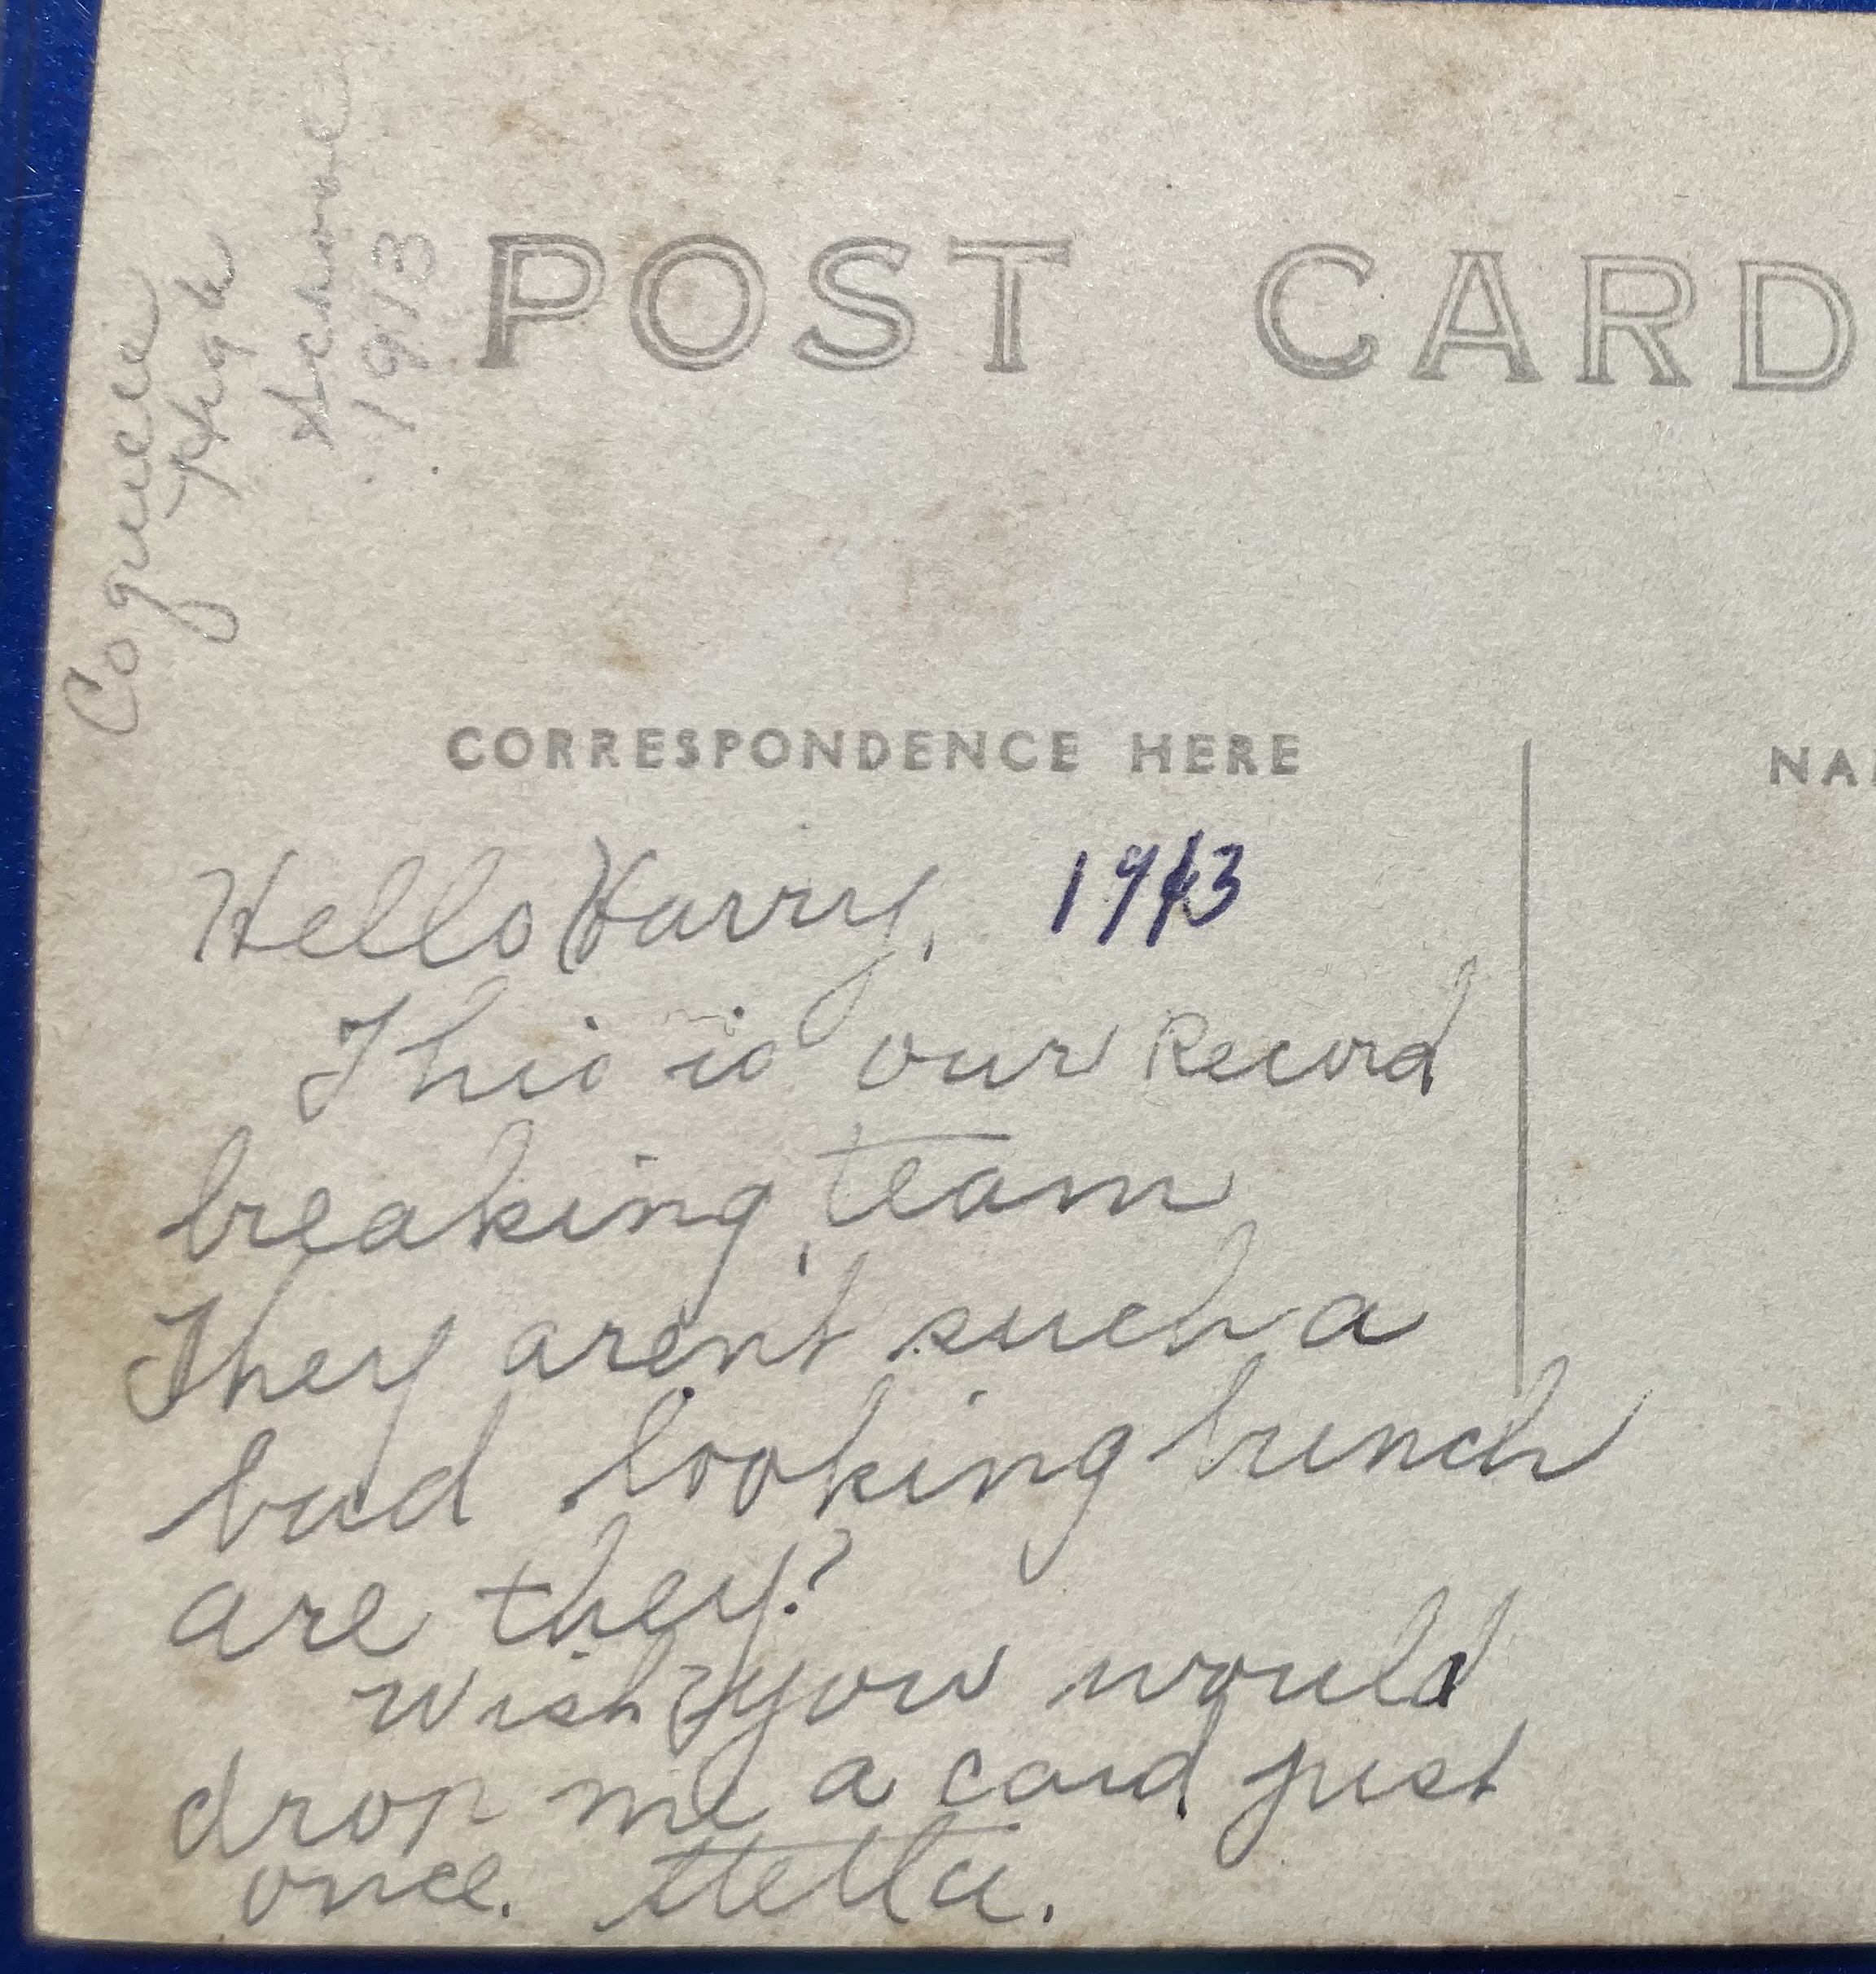 Coquille
High
School
1913
POST CARD
CORRESPONDENCE HERE
NA
Hello Harry, 1913
This is our Record
breaking team
They aren't such a
bad looking bunch
are they?
Wish you would
drop me a card just
once. Stella.